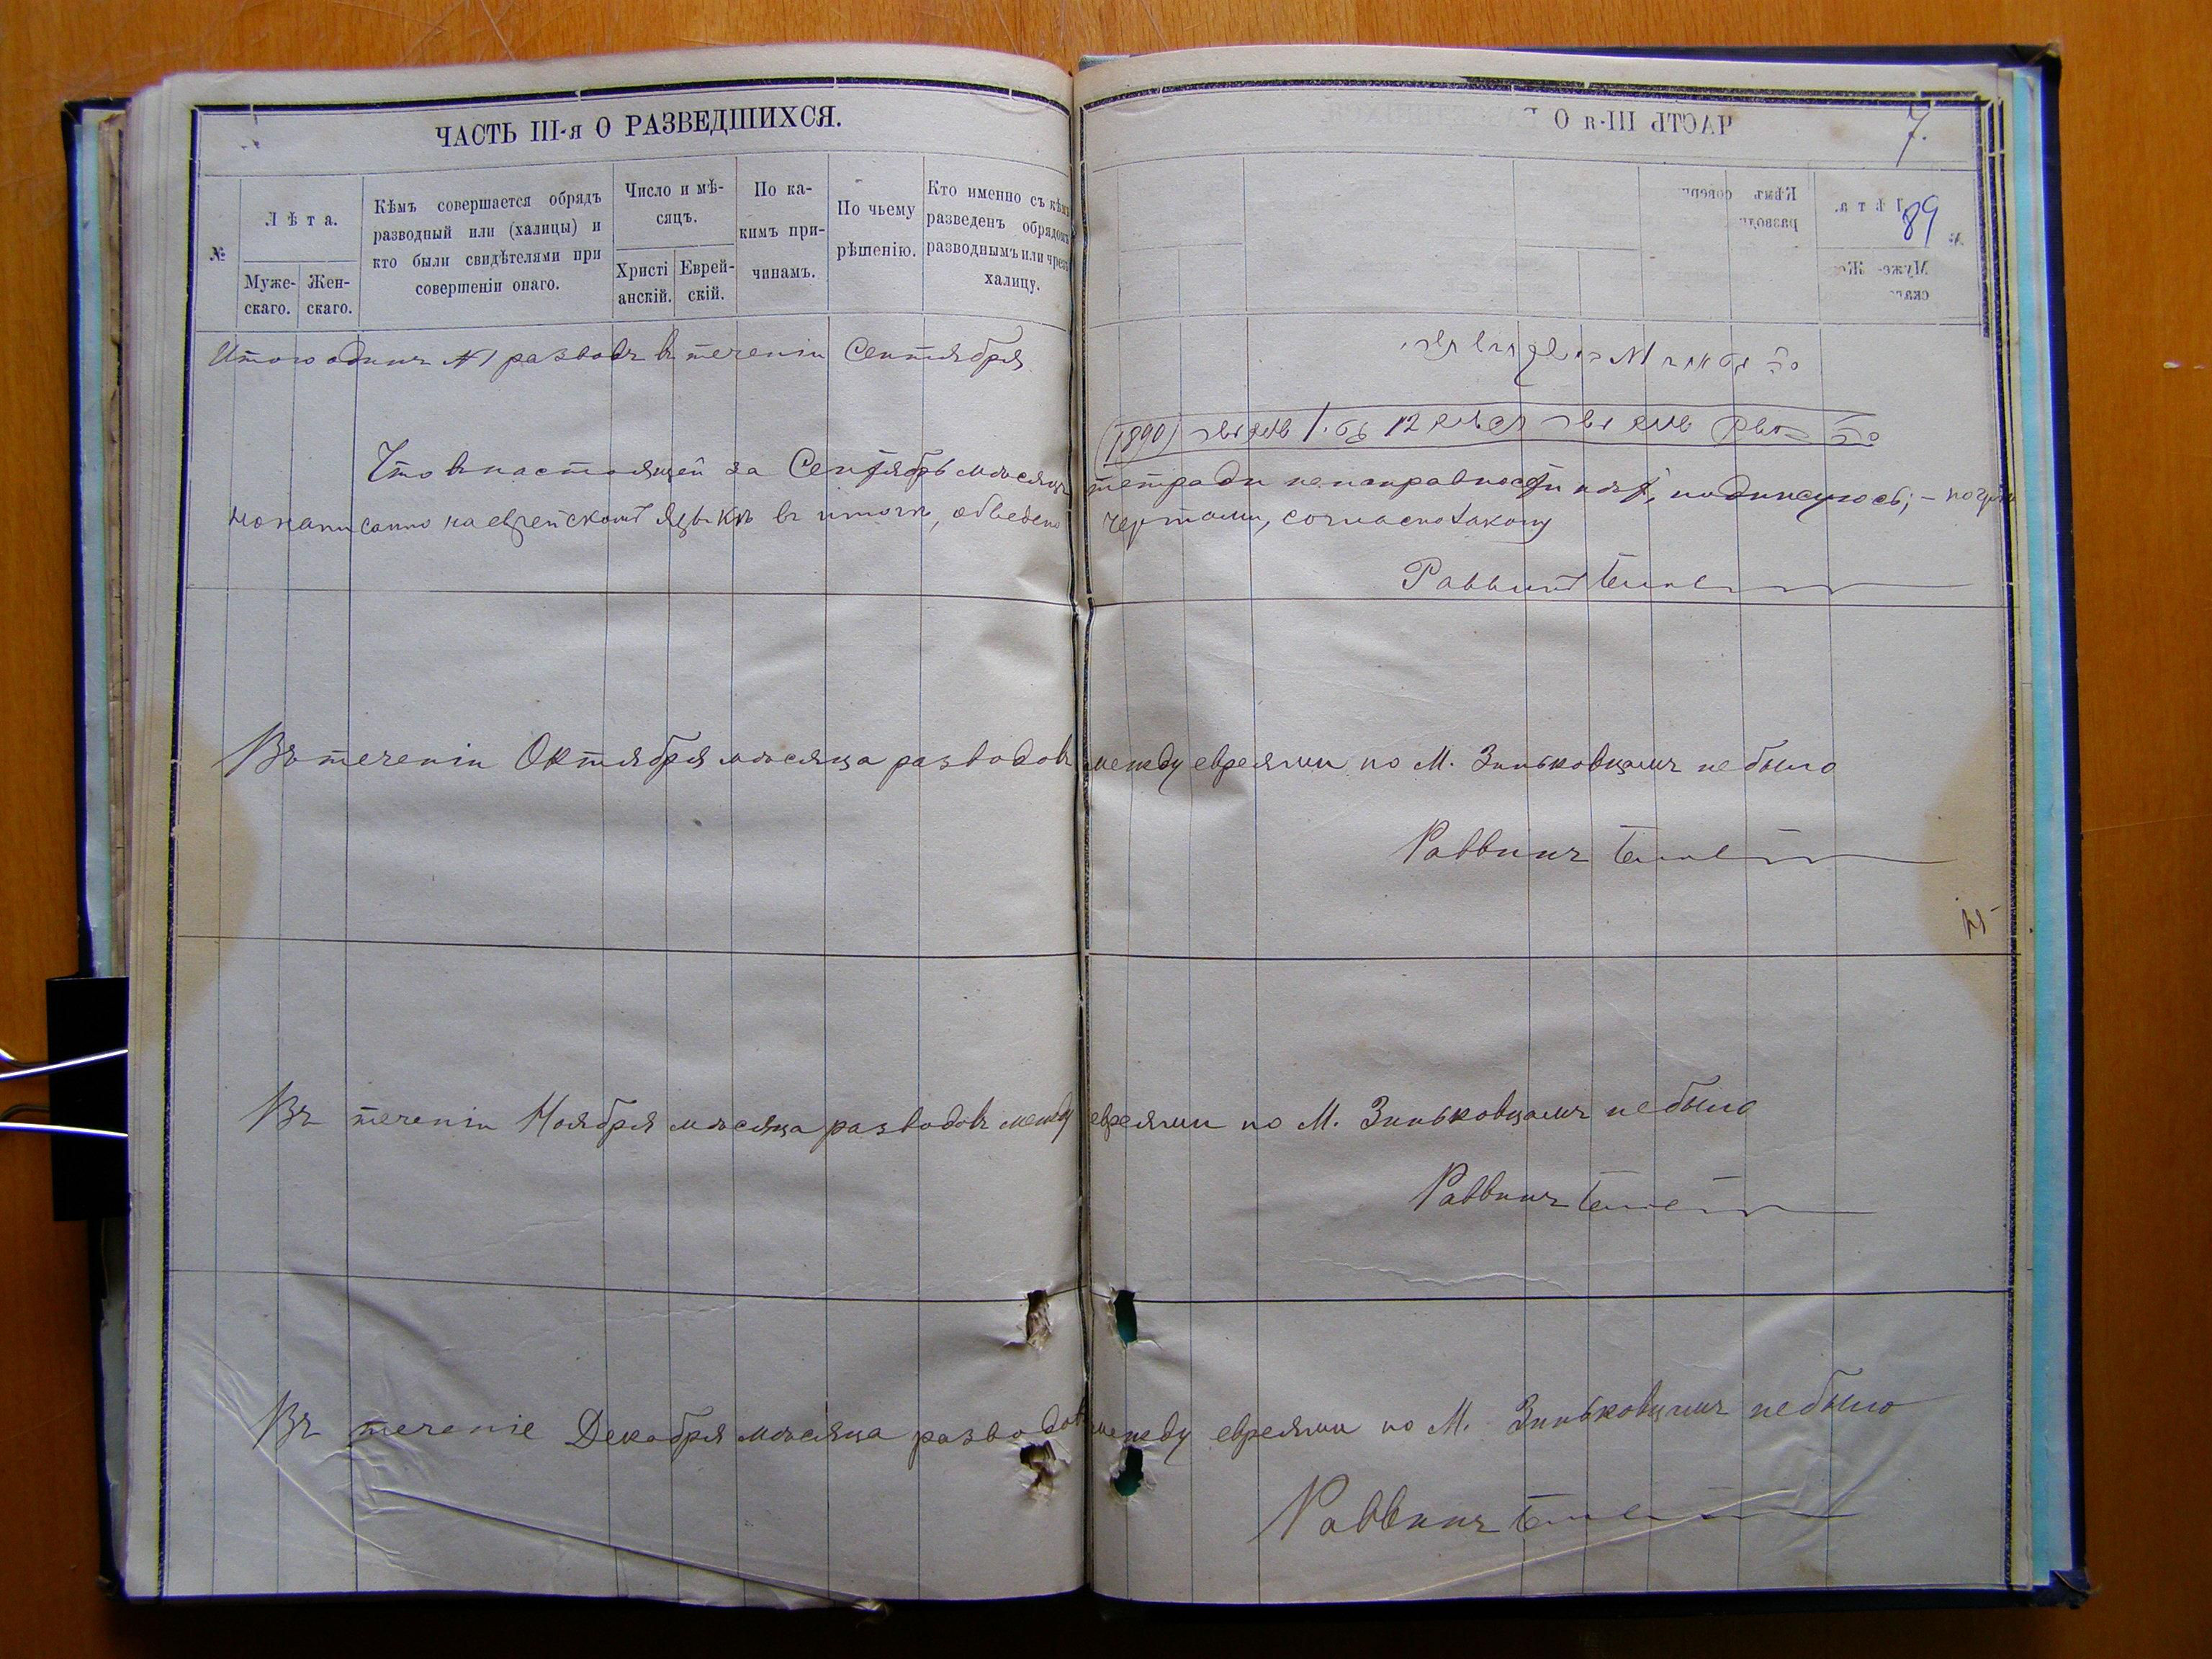 ЧАСТЬ III-я О РАЗВЕДШИХСЯ.
№
Лѣта.
Муже-
скаго.
Жен-
скаго.
Кѣмъ совершается обрядъ
разводный или (халицы) и
кто были свидѣтелями при
совершеніи онаго.
Число и мѣ-
сяцъ.
Христі
анскій.
Еврей-
скій.
По ка-
кимъ при-
чинамъ.
По чьему
рѣшенію.
Кто именно съ кѣмъ
разведенъ обрядомъ
разводнымъ или чрезъ
халицу.
7.
89
Итого одинъ №1 разводъ въ теченіи Сентября
(1890)
Что въ настоящей за Сентябрь мѣсяцъ тетради неисправности нѣтъ, подписуюсь; —
написанно на еврейскомъ языкѣ въ итогѣ, обведено чертами, согласно закону
Раввинъ
Въ теченіи Октября мѣсяца разводовъ между евреями по М. Зиньковцамъ не было
Раввинъ
Въ теченіи Ноября мѣсяца разводовъ между евреями по М. Зиньковцамъ не было
Раввинъ
Въ теченіе Декабря мѣсяца разводовъ между евреями по М. Зиньковцамъ не было
Раввинъ